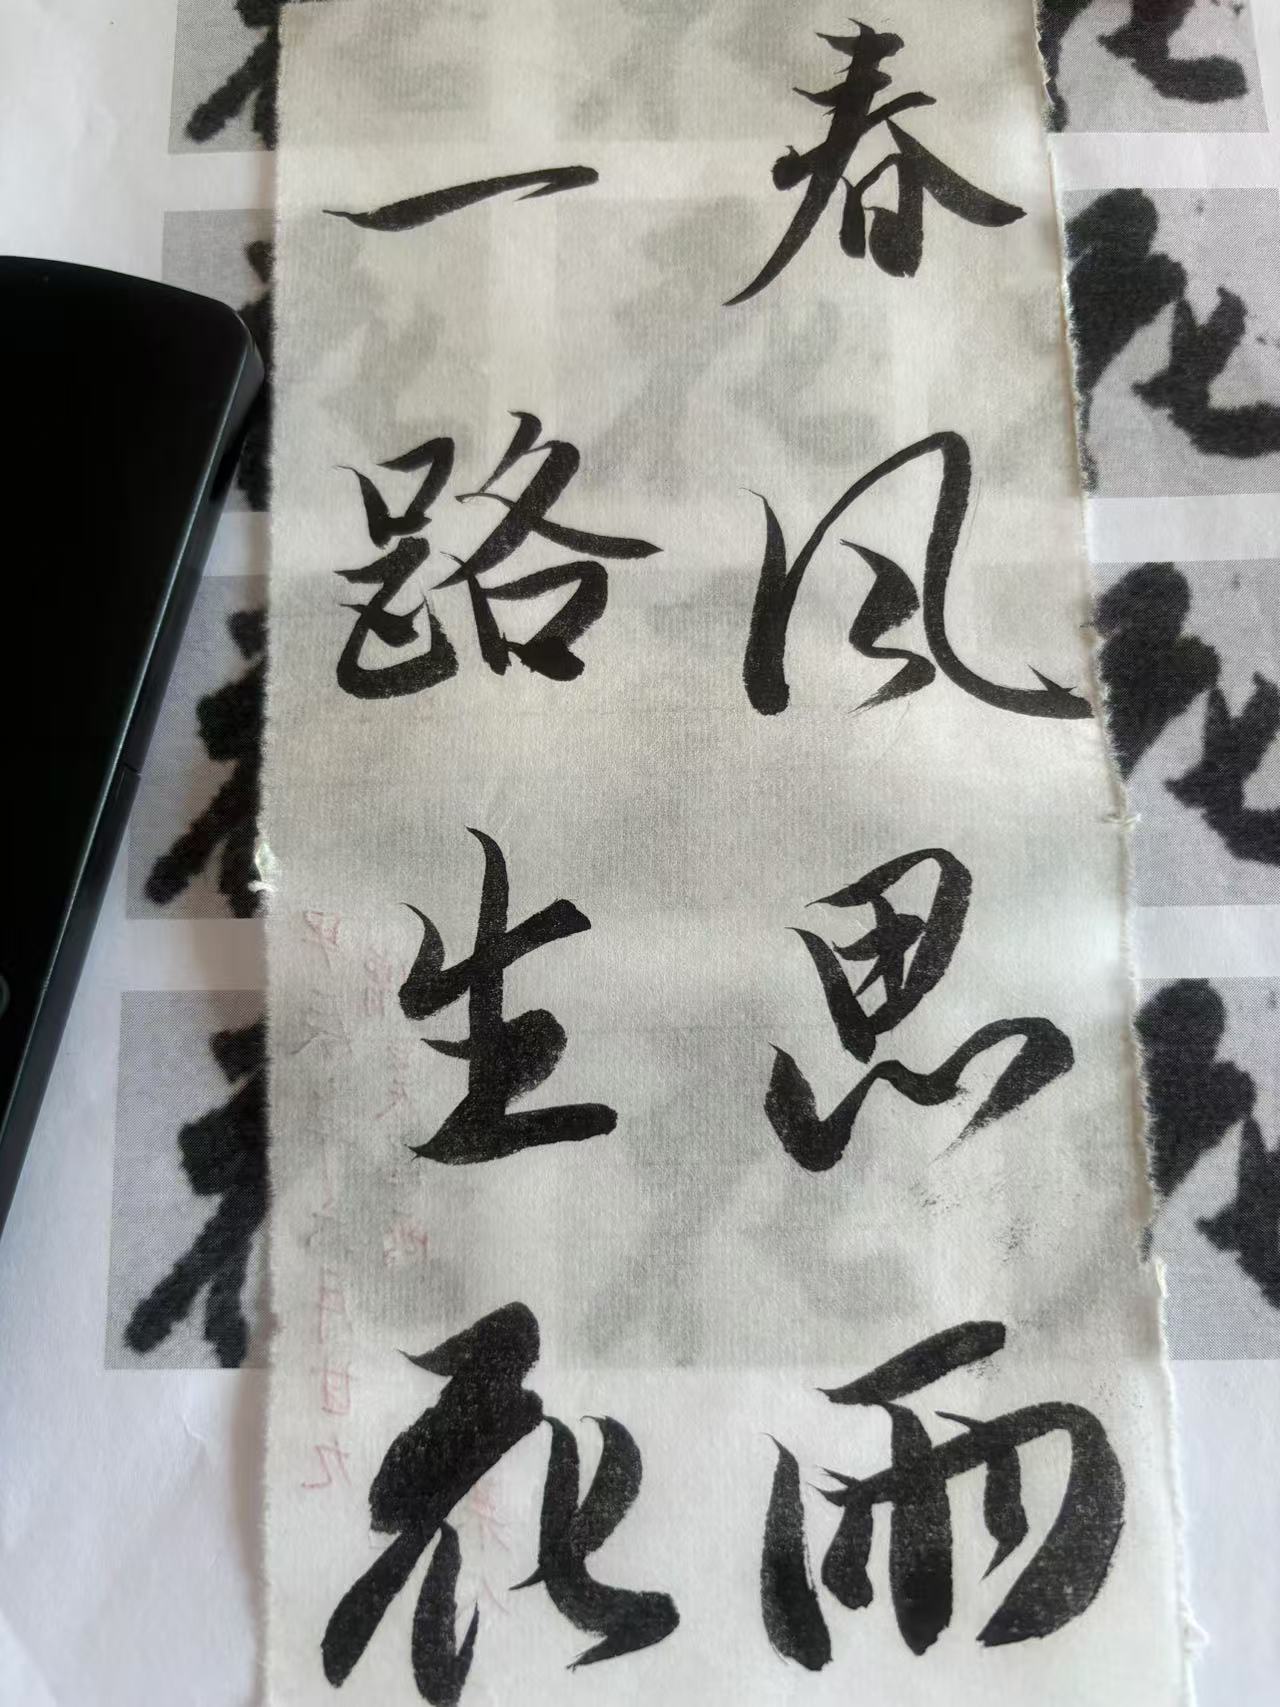 春风思雨
一路生花